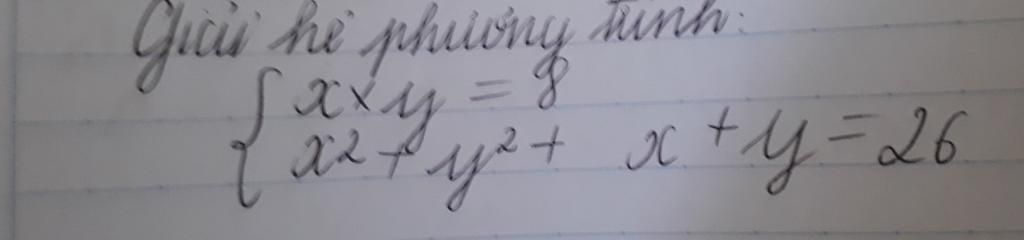 Giải hệ phương trình:
{ x × y = 8
x² + y² + x + y = 26